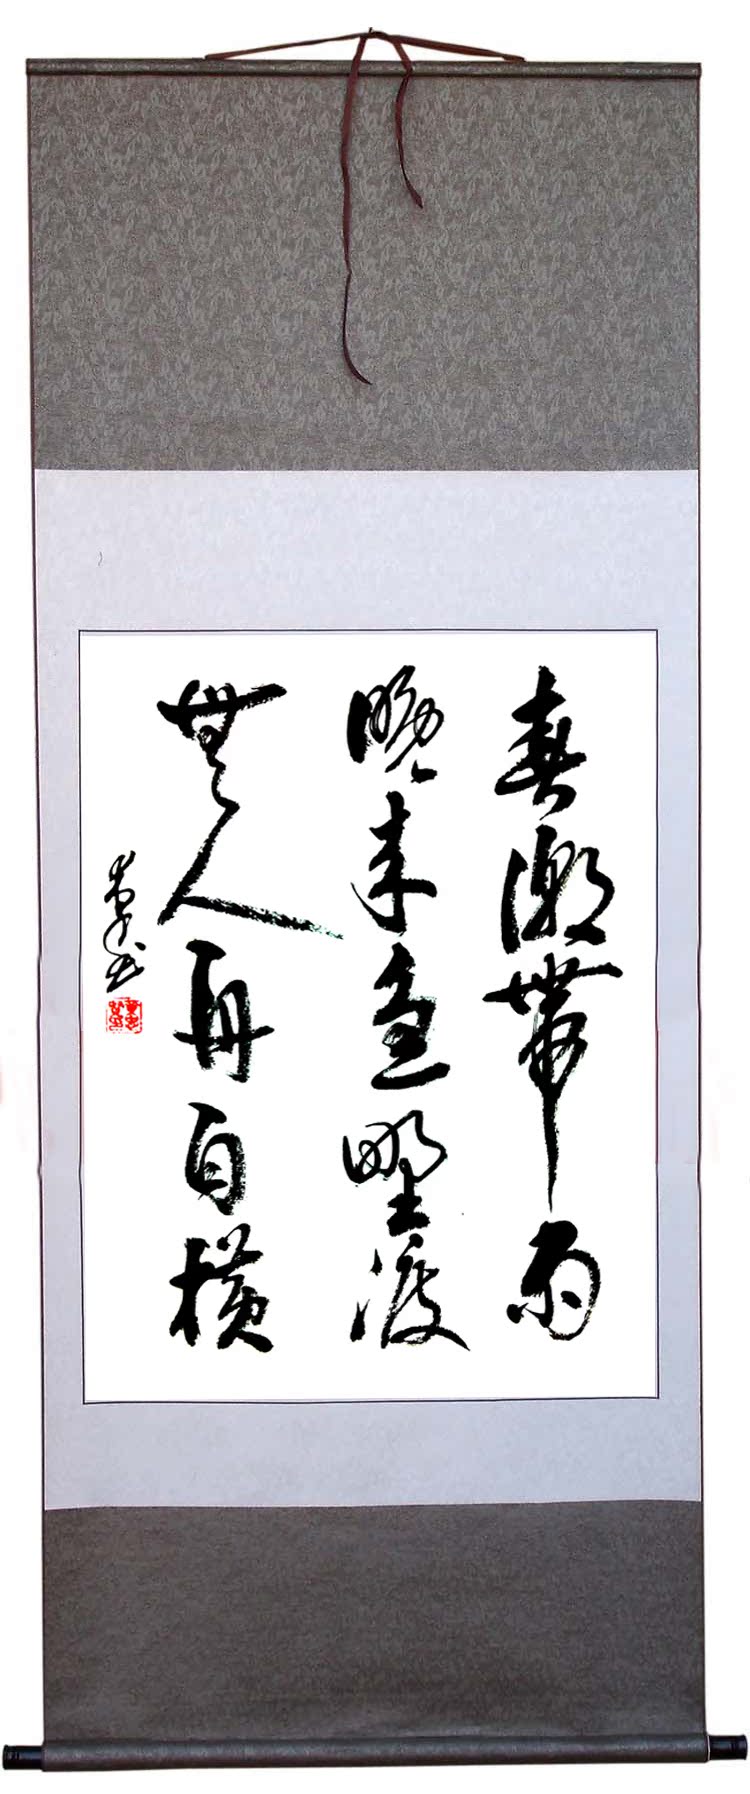 春潮帶雨
晚来急野渡
無人舟自橫